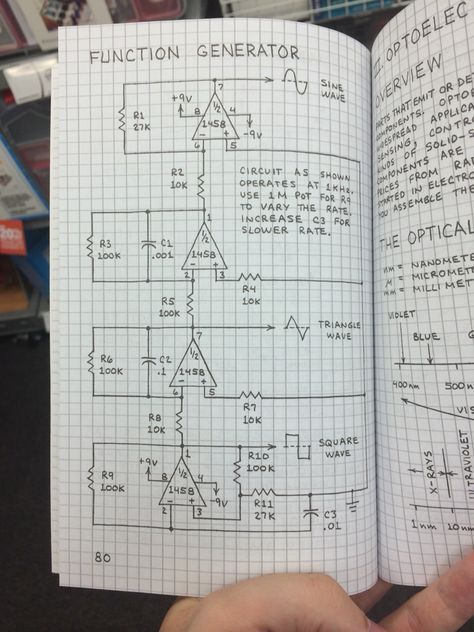 FUNCTION GENERATOR
7
+9V
8
1/2
4
1458
-9V
6
5
SINE
WAVE
R1
27K
R2
10K
CIRCUIT AS SHOWN
OPERATES AT 1KHz.
USE 1M POT FOR R9
TO VARY THE RATE.
INCREASE C3 FOR
SLOWER RATE.
R3
100K
C1
.001
1
1/2
1458
2
3
R4
10K
R5
100K
7
TRIANGLE
WAVE
R6
100K
C2
.1
1/2
1458
6
5
R7
10K
R8
10K
SQUARE
WAVE
R9
100K
+9V
8
1
1/2
4
1458
-9V
2
3
R10
100K
R11
27K
C3
.01
80
OPTOELEC
OVERVIEW
THAT EMIT OR DE
COMPONENTS.
APPLIC
SENSING, CONTR
OF SOLID-
COMPONENTS ARE
PRICES FROM
STARTED IN ELECTRO
YOU ASSEMBLE TH
THE OPTICAL
nm = NANOMETE
μ = MICROMET
mm = MILLIMET
VIOLET
BLUE
400nm
500n
X-RAYS
1nm
10